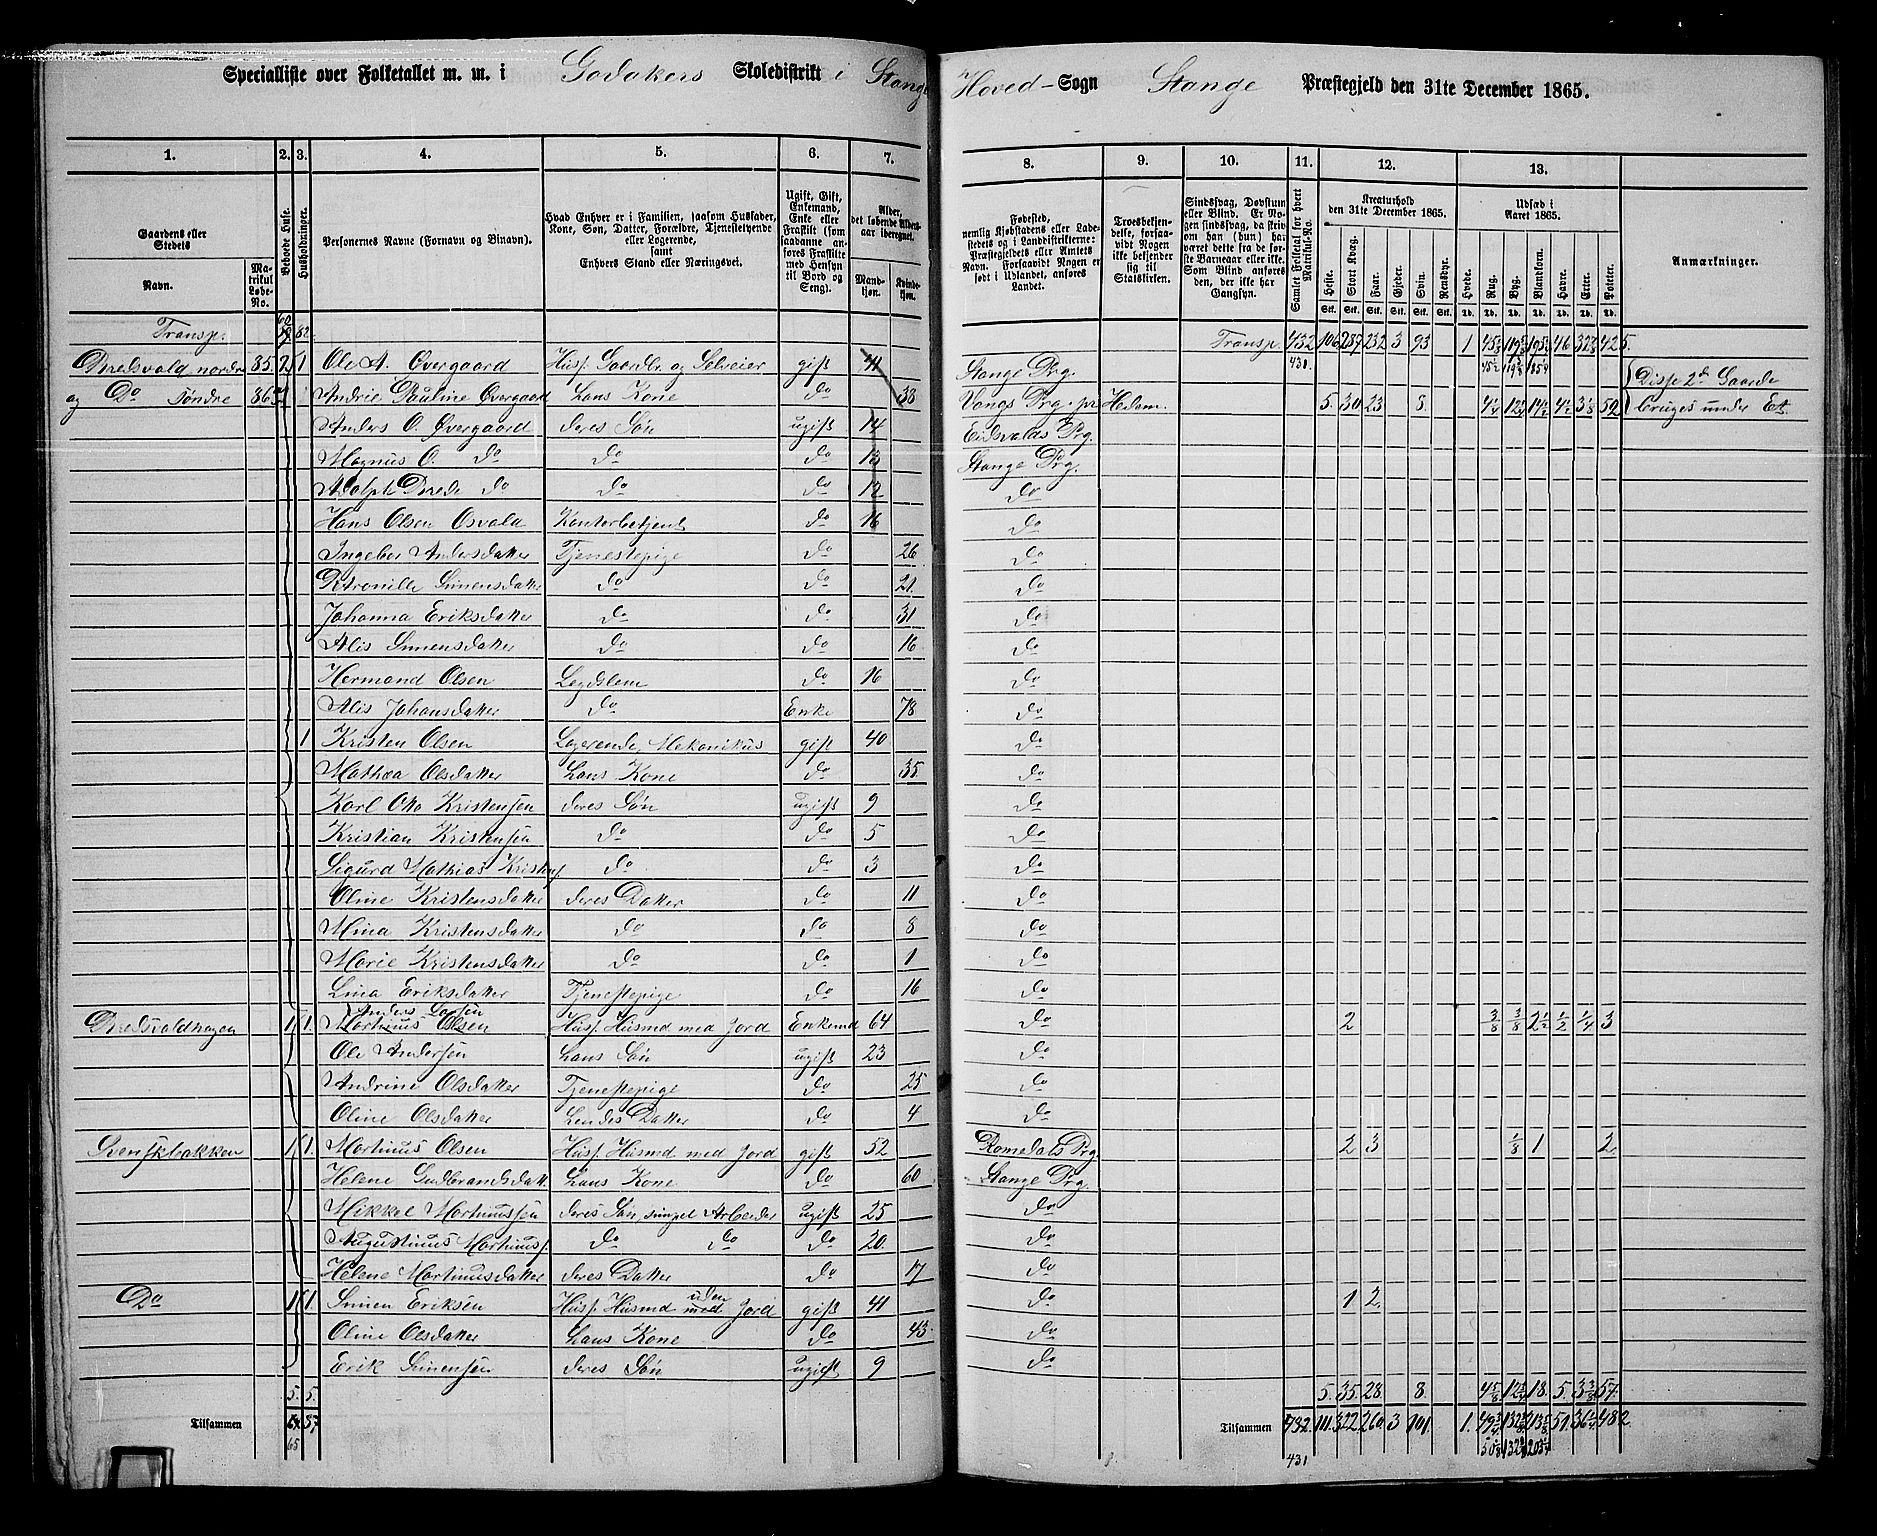 Specialliste over Folketallet m. m. i Godakers Skoledistrikt i Stange Hoved-Sogn Stange Præstegjeld den 31te December 1865.
1. 2. 3. 4. 5. 6. 7. 8. 9. 10. 11. 12. 13.
Gaardens eller Stedets
Navn.
Matrikul Løbe-No.
Beboede Huse.
Husholdninger.
Personernes Navne (Fornavn og Binavn).
Hvad Enhver er i Familien, saasom Husfader, Kone, Søn, Datter, Forældre, Tjenestetyende eller Logerende, samt Enhvers Stand eller Næringsvei.
Ugift, Gift, Enkemand, Enke eller Fraskilt (som saadanne anføres Fraskilte med Hensyn til Bord og Seng).
Alder, det løbende Aldersaar iberegnet.
Mandkjøn. Kvindekjøn.
Fødested, nemlig Kjøbstadens eller Ladestedets og i Landdistrikterne: Præstegjeldets eller Amtets Navn. Forsaavidt Nogen er født i Udlandet, anføres Landet.
Troesbekjendelse, forsaavidt Nogen ikke bekjender sig til Statskirken.
Sindssvag, Døvstum eller Blind. Er Nogen sindssvag, da skrives om han (hun) har været dette fra de første Barneaar eller ikke. Som Blind anføres den, der ikke har Gangsyn.
Samlet Folketal for hvert Matrikul-No.
Kreaturhold den 31te December 1865.
Heste. Stort Kvæg. Faar. Gjeder. Svin. Rensdyr.
Udsæd i Aaret 1865.
Hvede. Rug. Byg. Blandkorn. Havre. Erter. Poteter.
Anmærkninger.
Transp. 62. Transp. 432 106 287 232 3 93 1
Bredsvald nordre 35. 1 Ole A. Øvergaard Husf. Gaardbr. og Selveier gift 41 Stange Prg.
og Do søndre 36 Andrie Pauline Øvergaard hans Kone do 38 Vangs Prg. pr Hedem. 5. 30 23 8. { Disse 2de Gaarde bruges under Et.
Anders O. Øvergaard deres Søn ugift 14 Eidsvolds Prg.
Magnus O. do do do 13 Stange Prg.
Adolph Brede do do do 12 do
Hans Olsen Osvald Kontorbetjent do 16 do
Ingebor Andersdatter Tjenestepige do 26 do
Petronille Simensdatter do do 21. do
Johanna Eriksdatter do do 31 do
Alis Simensdatter do do 16 do
Hermand Olsen Legdslem do 16 do
Alis Johansdatter do Enke 78 do
1 Kristen Olsen Logerende, Mekanikus gift 40 do
Mathea Olsdatter hans Kone do 35 do
Karl Otto Kristensen deres Søn ugift 9 do
Kristian Kristensen do do 5 do
Sigurd Mathias Kristens. do do 3 do
Oline Kristensdatter deres Datter do 11 do
Mina Kristensdatter do do 8 do
Marie Kristensdatter do do 1 do
Lina Eriksdatter Tjenestepige do 16 do
Anders Larsen
Bredsvaldhagen 1 1. Martinus Olsen Husf. Husmd med Jord Enkemd 64 do 2 3/8 3/8 2 1/2 1/2 1/4 3
Ole Andersen hans Søn ugift 23 do
Andrine Olsdatter Tjenestepige do 25 do
Oline Olsdatter hendes Datter do 4 do
Svenskbakken 1 1. Martinus Olsen Husf. Husmd med Jord gift 52 Romedals Prg. 2 3 1/8 1 2
Helene Gudbrandsdatt. hans Kone do 60 Stange Prg.
Mikkel Martinussen deres Søn, simpel Arbeider ugift 25 do
Augustinus Martinuss. do do do 20. do
Helene Martinusdatter deres Datter do 17 do
Do 1 1. Simen Eriksen Husf. Husmd uden med Jord gift 41 do 1 2
Oline Olsdatter hans Kone do 43 do
Erik Simensen deres Søn ugift 9 do
5. 5. 5. 35 28 8. 18. 5. 57.
Tilsammen 65 Tilsammen 111. 322 260 3 101 1. 51 482
431